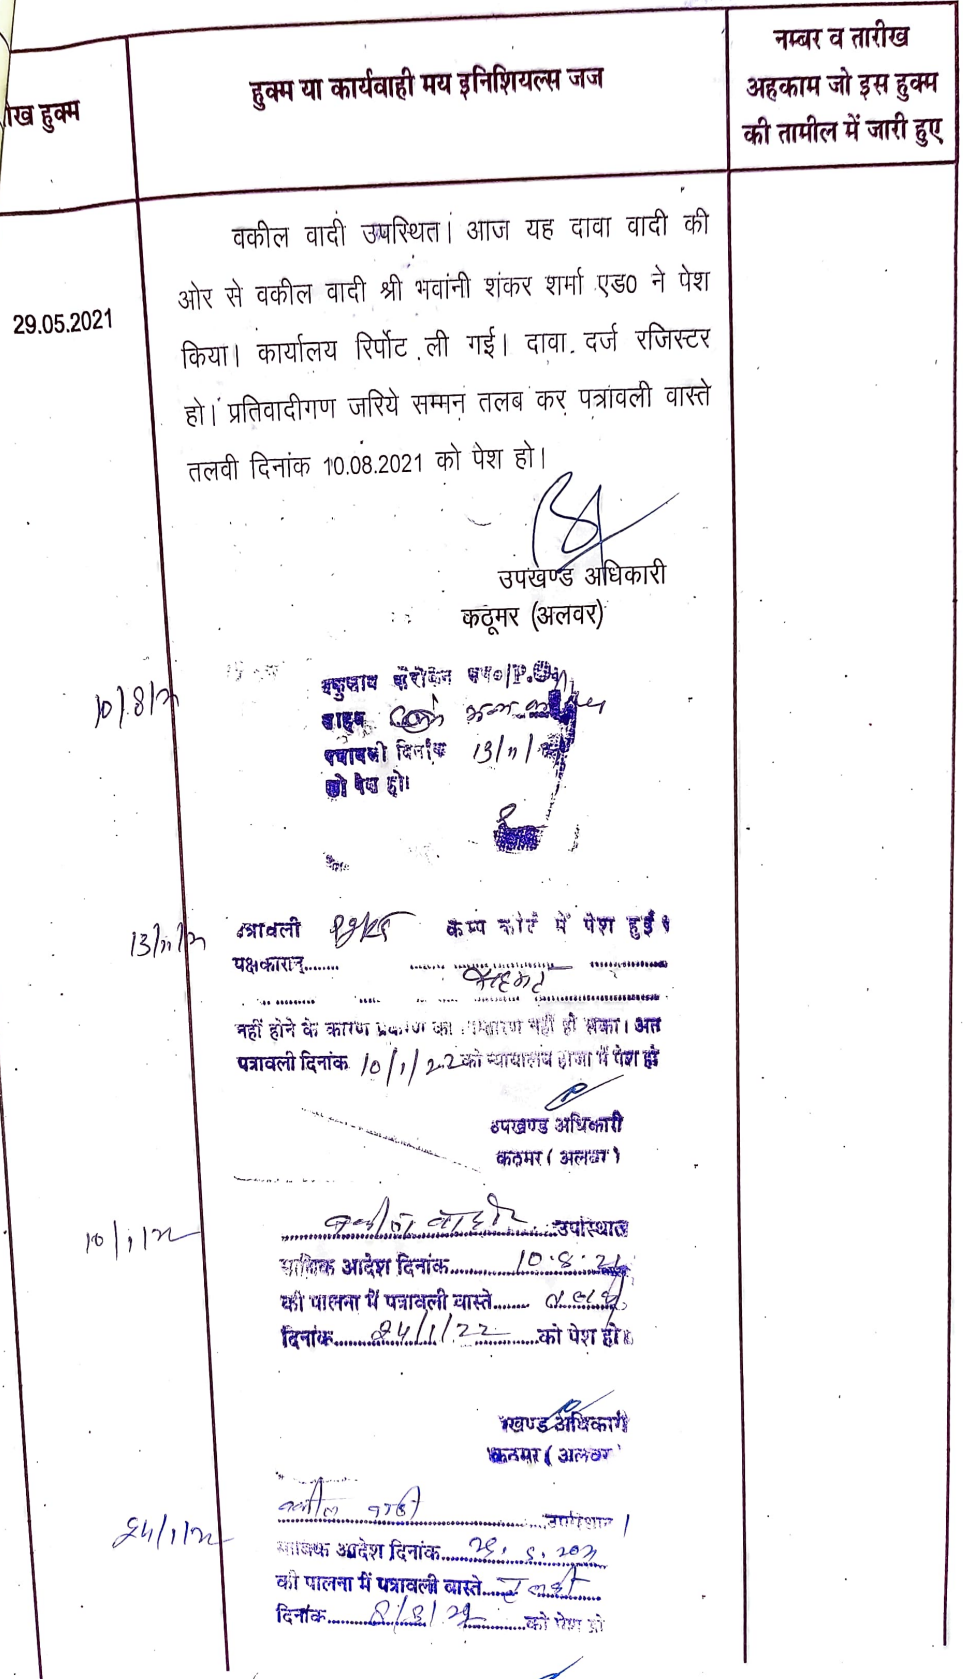 नम्बर व तारीख
हुक्म या कार्यवाही मय इनिशियल्स जज
अहकाम जो इस हुक्म
हुक्म
की तामील में जारी हुए
वकील वादी उपस्थित। आज यह दावा वादी की
ओर से वकील वादी श्री भवानी शंकर शर्मा एड0 ने पेश
29.05.2021
किया। कार्यालय रिर्पोट ली गई। दावा दर्ज रजिस्टर
हो। प्रतिवादीगण जरिये सम्मन तलब कर पत्रावली वास्ते
तलवी दिनांक 10.08.2021 को पेश हो।
उपखण्ड अधिकारी
कठूमर (अलवर)
10/8/21
पत्रावली दिनांक 13/11/21
को पेश हो।
13/11/21
पत्रावली कैम्प कोर्ट में पेश हुई।
पक्षकारान्........
नहीं होने के कारण प्रकरण का निस्तारण नहीं हो सका। अत
पत्रावली दिनांक 10/1/22 को न्यायालय हाजा में पेश हो
उपखण्ड अधिकारी
कठूमर (अलवर)
10/1/22
वकील वादी उपस्थित
साबिक आदेश दिनांक 10.8.21
की पालना में पत्रावली वास्ते तलवी
दिनांक 24/1/22 को पेश हो।
खण्ड अधिकारी
कठूमर (अलवर
24/1/22
वकील वादी उपस्थित।
साबिक आदेश दिनांक
की पालना में पत्रावली वास्ते तलवी
दिनांक को पेश हो